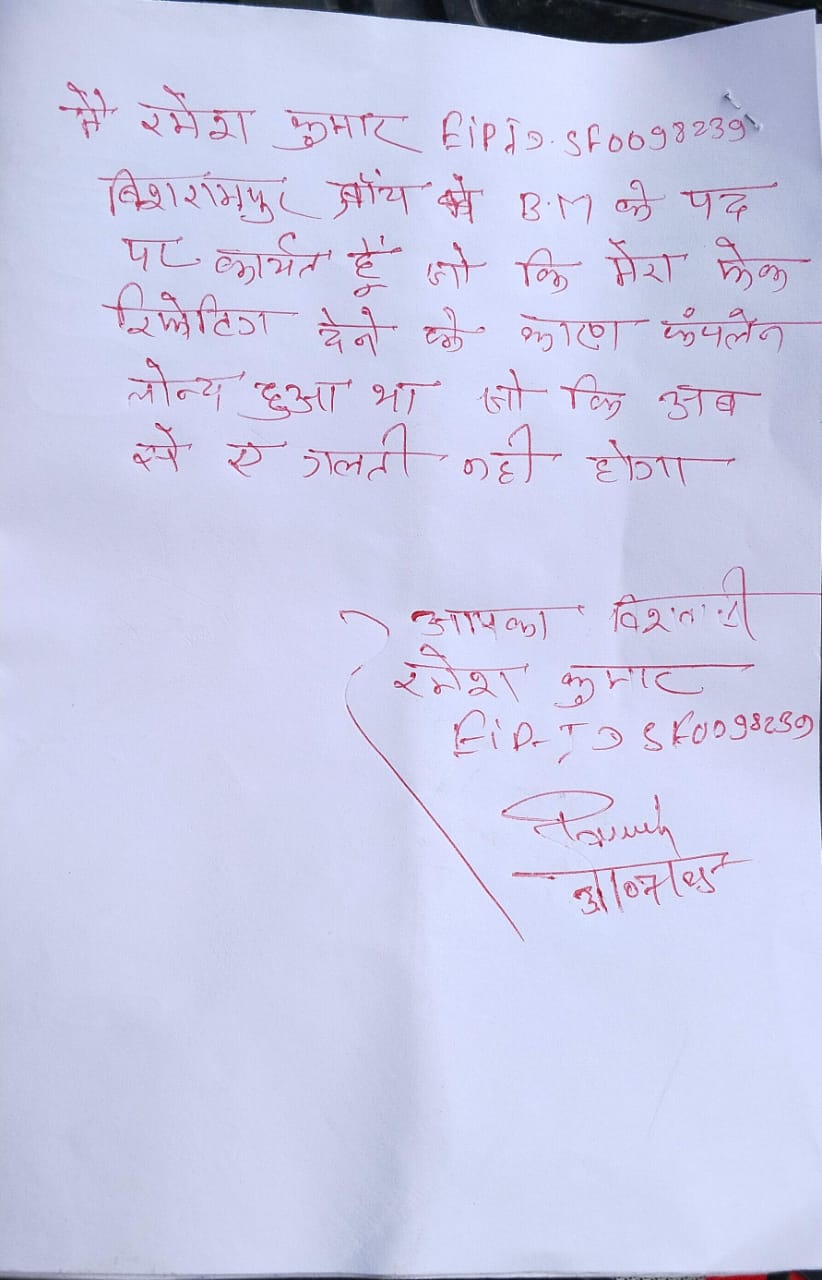 मैं रमेश कुमार EiPID. SF0098239
बिशरामपुर ब्रांच में B.M के पद
पर कार्यत हूँ जो कि मेरा फेक
रिपोटिंग देने के कारण कंपलेन
लोन्च हुआ था जो कि अब
से ए गलती नही होगा
आपका
रमेश कुमार
EiP-ID SF0098239